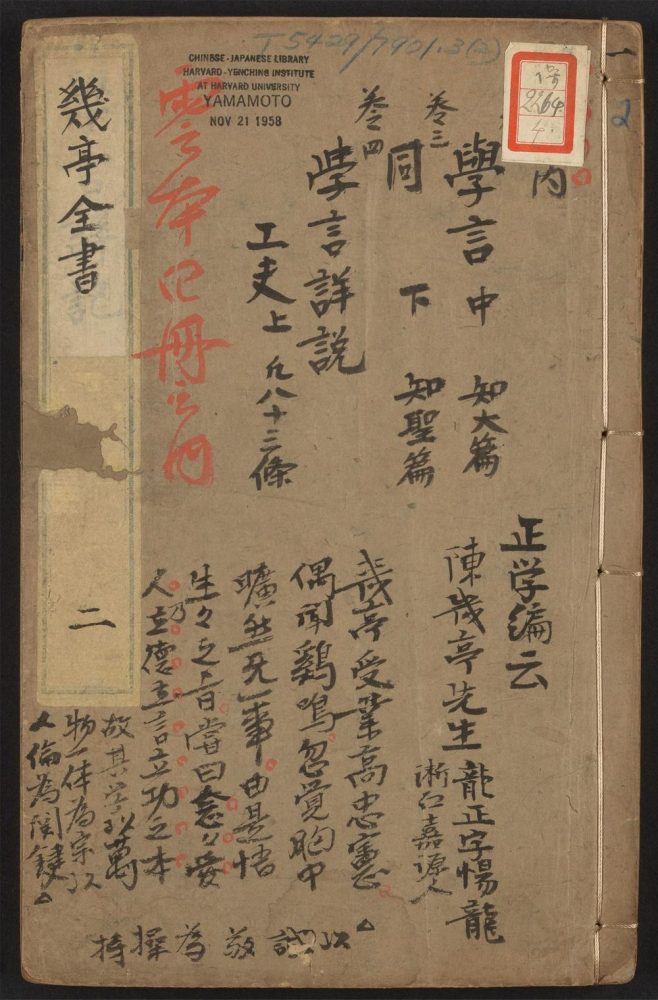 T5429/7901.3(2)
CHINESE-JAPANESE LIBRARY
HARVARD-YENCHING INSTITUTE
AT HARVARD UNIVERSITY
YAMAMOTO
NOV 21 1958
2264
4
一
2
内
卷三
學言中 知大篇
同 下 知聖篇
卷四
學言詳説
工夫上 凡八十三條
全本四冊之內
幾亭全書
二
正学編云
陳幾亭先生龍正字惕龍
浙江嘉源人
幾亭受業高忠憲
偶聞鷄鳴忽覚胸中
曠然无一事由是悟
生々之旨嘗曰念々愛
人乃立德立言立功之本
故其学以萬
物一体為宗以
人倫為関鍵
以誠敬為操持